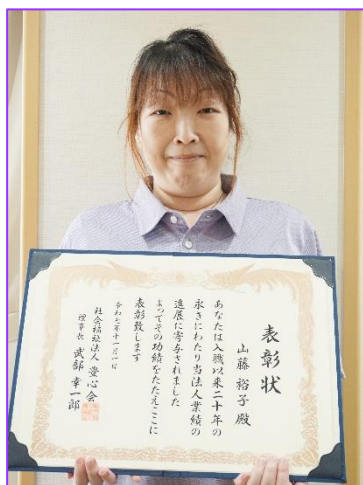 表彰状
山藤裕子殿
あなたは入職以来二十年の
永きにわたり当法人業績の
進展に寄与されました
よつてその功績をたたえここに
表彰致します
令和七年十一月一日
社会福祉法人 愛心会
理事長 武部幸一郎